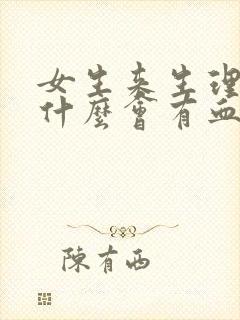 女生来生理
什麼會有血
陳有西